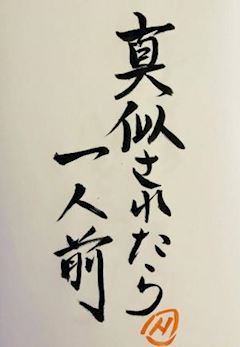 真似されたら
一人前